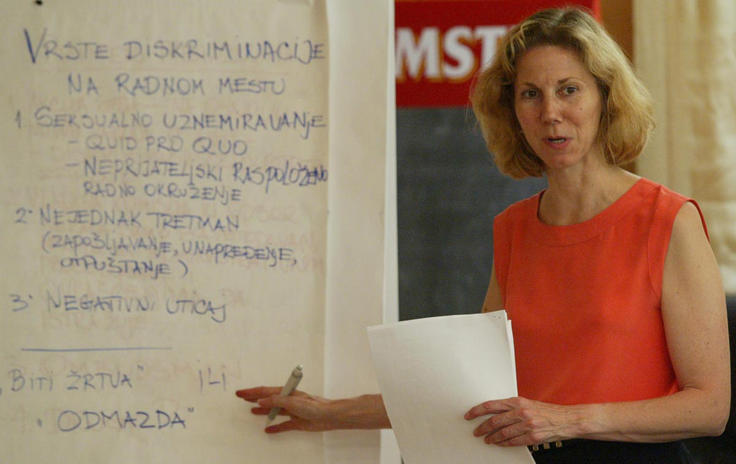 VRSTE DISKRIMINACIJE
NA RADNOM MESTU
1. SEKSUALNO UZNEMIRAVANJE
- QUID PRO QUO
- NEPRIJATELJSKI RASPOLOŽENO
RADNO OKRUŽENJE
2. NEJEDNAK TRETMAN
(ZAPOŠLJAVANJE, UNAPREĐENJE,
OTPUŠTANJE)
3. NEGATIVNI UTICAJ
„BITI ŽRTVA" ILI
"ODMAZDA"